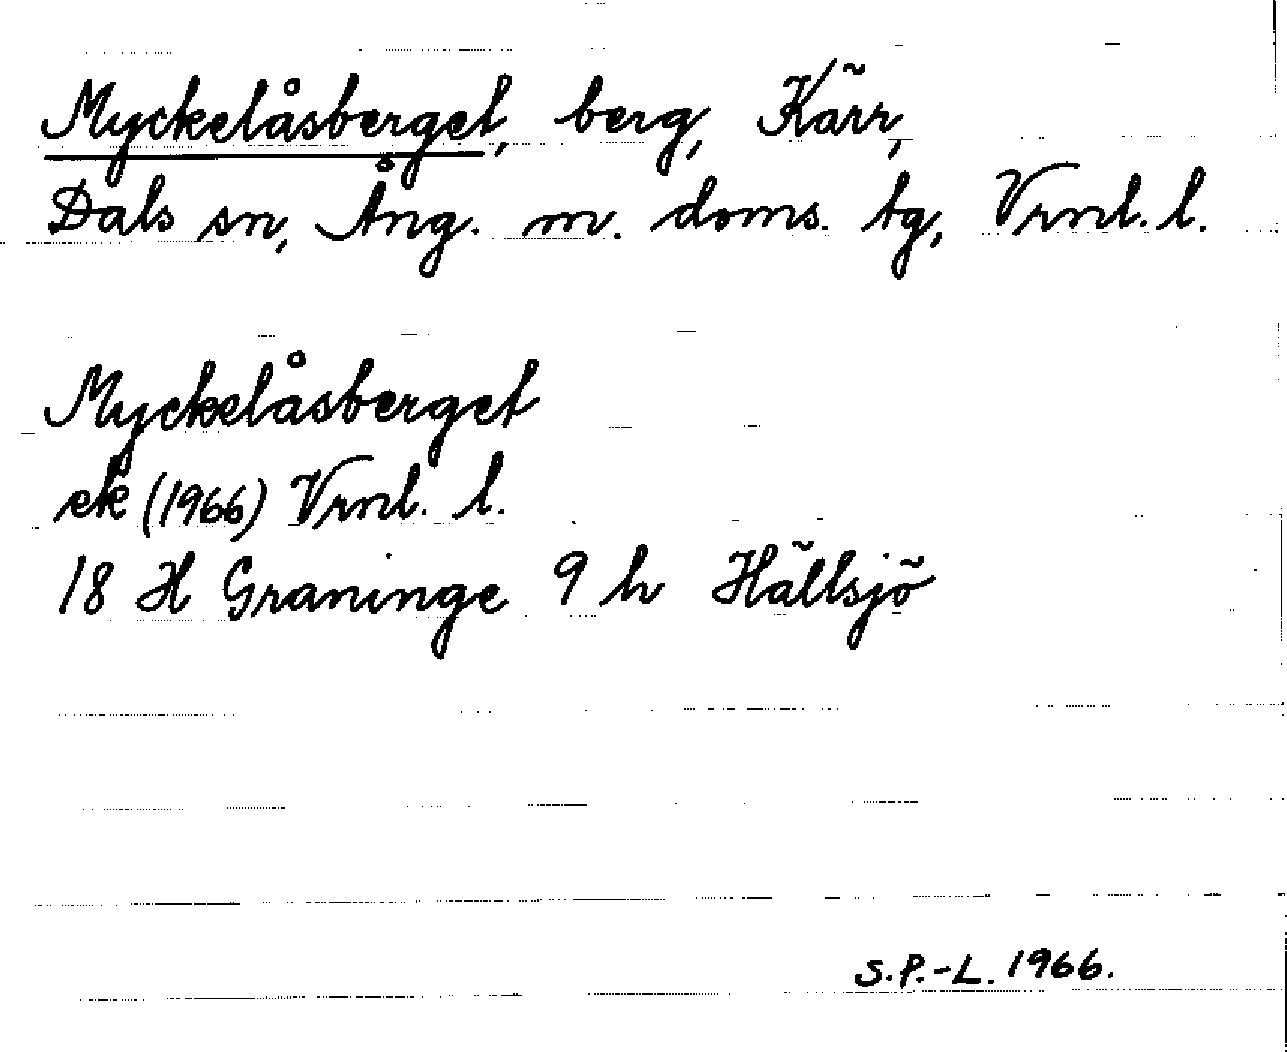 Myckelåsberget, berg, Kärr,
Dals sn, Ång. m. doms. tg, Vrnl. l.
Myckelåsberget
ek (1966) Vrnl. l.
18 H Graninge 9 h Hällsjö
S.P.-L. 1966.